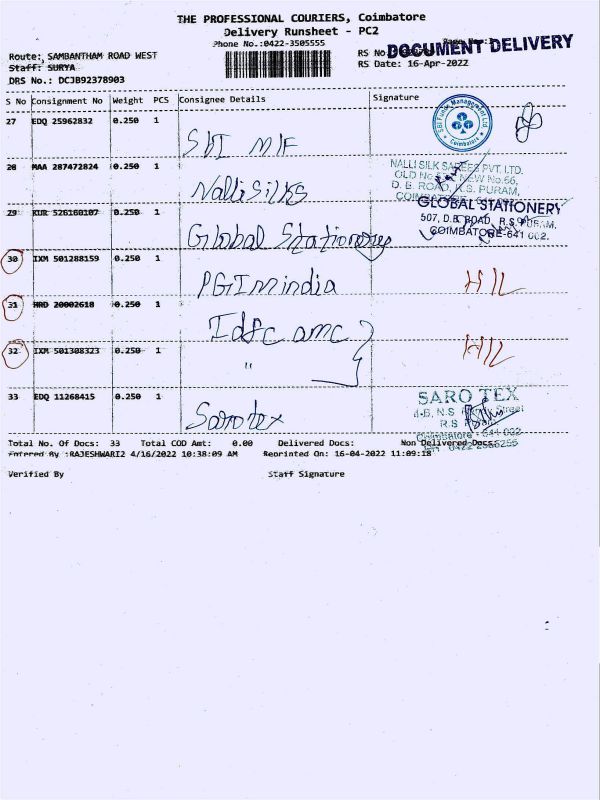 THE PROFESSIONAL COURIERS, Coimbatore
Delivery Runsheet - PC2
Phone No.:0422-3505555
DOCUMENT DELIVERY
Route: SAMBANTHAM ROAD WEST
RS No
Staff: SURYA
RS Date: 16-Apr-2022
DRS No.: DCJB92378903
S No Consignment No Weight PCS Consignee Details Signature
27 EDQ 25962832 0.250 1
SBI MF
SBI Funds Management Ltd
Coimbatore
28 MAA 287472824 0.250 1
Nalli Silks
NALLI SILK SAREES PVT. LTD.
OLD No. NEW No.66,
D. B. ROAD, R.S. PURAM,
29 KUR 526160107 0.250 1
Global Stationery
GLOBAL STATIONERY
507, D.B. ROAD, R.S. PURAM,
COIMBATORE-641 002.
30 IXM 501288159 0.250 1
PGIM india
H/L
31 HRD 20002618 0.250 1
Idfc amc
32 IXM 501308323 0.250 1
"
H/L
33 EDQ 11268415 0.250 1
Saro tex
SARO TEX
Street
R.S
Coimbatore - 641 002
Total No. Of Docs: 33 Total COD Amt: 0.00 Delivered Docs: Non Delivered Docs:
Entered By :RAJESHWARI2 4/16/2022 10:38:09 AM Reprinted On: 16-04-2022 11:09:18
Verified By Staff Signature